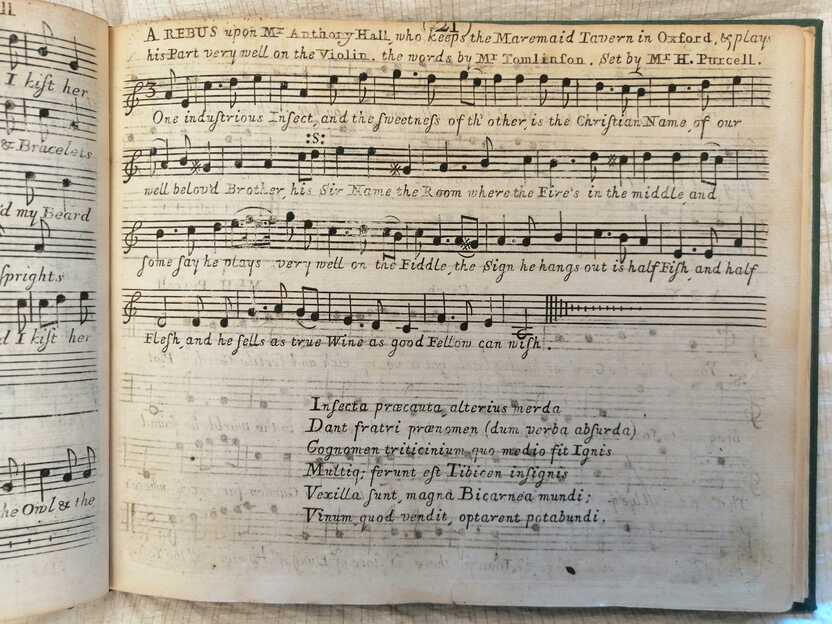 ll
I kiſt her
& Bracelets
'd my Beard
ſprights
d I kiſt her
he Owl & the
(21)
A REBUS upon Mr. Anthony Hall, who keeps the Maremaid Tavern in Oxford, & plays
his Part very well on the Violin. the words by Mr. Tomlinſon. Set by Mr. H. Purcell.
3
One induſtrious Inſect, and the ſweetneſs of th' other, is the Chriſtian Name, of our
:S:
well belov'd Brother, his Sir Name the Room where the Fire's in the middle, and
ſome ſay he plays very well on the Fiddle, the Sign he hangs out is half Fiſh, and half
Fleſh, and he ſells as true Wine as good Fellow can wiſh.
Inſecta præcauta, alterius merda
Dant fratri prænomen (dum verba abſurda)
Cognomen triticinium quo medio fit Ignis
Multiq; ferunt eſt Tibicen inſignis
Vexilla ſunt, magna Bicarnea mundi;
Vinum quod vendit, optarent potabundi.